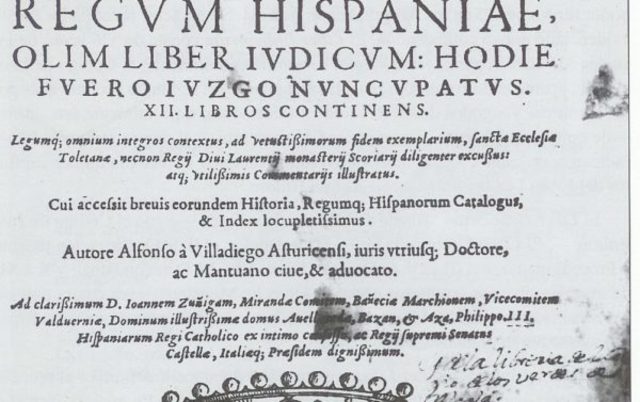 REGVM HISPANIAE,
OLIM LIBER IVDICVM: HODIE
FVERO IVZGO NVNCVPATVS.
XII. LIBROS CONTINENS.
Legumq; omnium integros contextus, ad vetustißimorum fidem exemplarium, sanctæ Ecclesiæ
Toletanæ, necnon Regij Diui Laurentij monasterij Scoriarij diligenter excussus:
atq; vtilißimis Commentarijs illustratus.
Cui accessit breuis eorundem Historia, Regumq; Hispanorum Catalogus,
& Index locupletissimus.
Autore Alfonso à Villadiego Asturicensi, iuris vtriusq; Doctore,
ac Mantuano ciue, & aduocato.
Ad clarißimum D. Ioannem Zuñigam, Mirandæ Comitem, Bañeciæ Marchionem, Vicecomitem
Valduerniæ, Dominum illustrißimæ domus Auellaneda, Bazan, & Aza, Philippo.III.
Hispaniarum Regi Catholico ex intimo ac Regij supremi Senatus
Castellæ, Italiæq; Præsidem dignißimum.
la libreria de